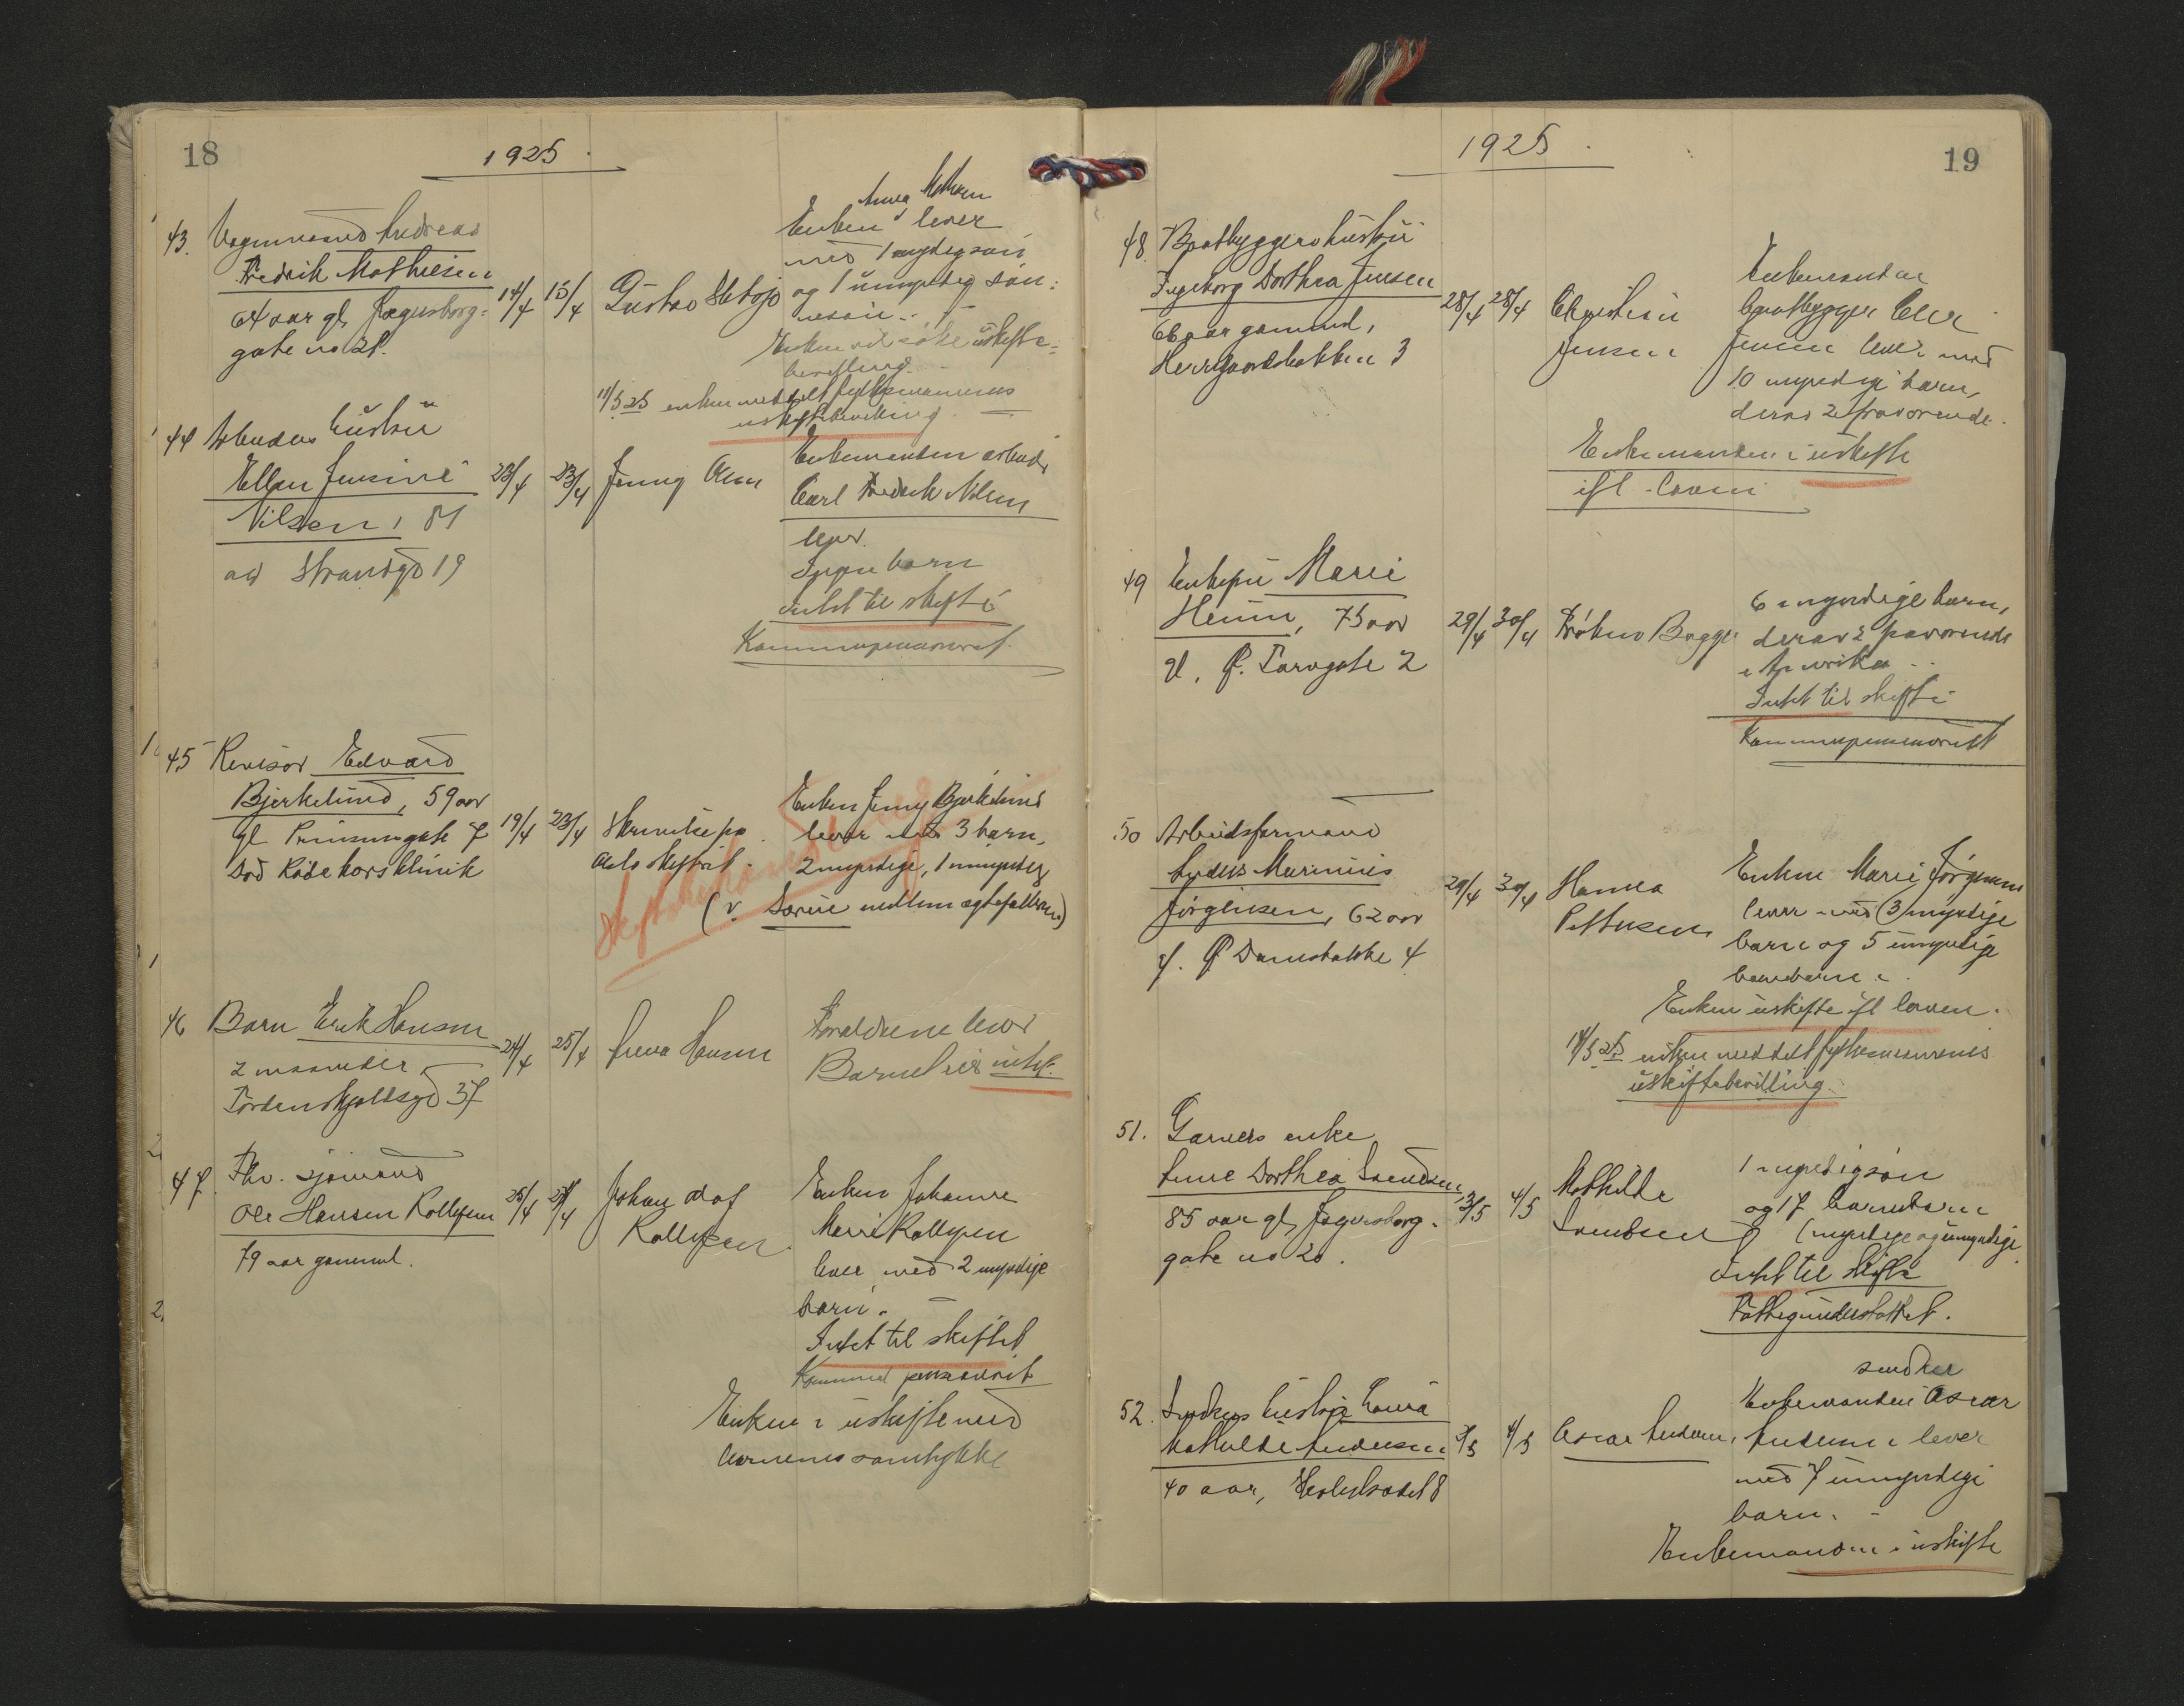 18
1925
43. Vognmand Andreas
Fredrik Mathiesen
64 aar gl, Jægersborg-
gate no 21.
14/4 15/4
Gustav
Anna Mathiesen
Enken lever
med 1 myndig søn
og 1 umyndig søn-
nesøn.
Enken vil søke uskifte-
bevilling.
11/5 25 enken meddelt fylkesmannens
uskiftebevilling.
44 Arbeiders hustru
Ellen Jensine
Nilsen, 81
aar Strandgd 19
23/4 23/4
Jenny Olsen
Enkemanden arbeider
Carl Fredrik Nilsen
lever.
Ingen barn
Intet til skifte
Kommunepensioneret.
45 Revisor Edvard
Bjerkelund, 59 aar
gl Prinsensgate 7
død Røde kors klinik
19/4 23/4
Skrivelse fra
Oslo skifteret.
Enken Jenny Bjerkelund
lever med 3 barn,
2 myndige, 1 umyndig
(v. Særeie mellem ægtefællerne)
46 Barn Erik Hansen
2 maaneder
Tordenskjoldsgd 37
24/4 25/4
Anna Hansen
Forældrene lever
Barnet eier intet.
47. Fhv. sjømand
Ole Hansen Rollefsen
79 aar gammel.
25/4 27/4
Johan Olaf
Rollefsen
Enken Johanne
Marie Rollefsen
lever med 2 myndige
barn.
Intet til skifte
Kommunal pensionist
Enken i uskifte med
arvernes samtykke
1925
19
48. Baatbyggers hustru
Ingeborg Dorthea Jensen
66 aar gammel,
Herregaardsbakken 3
28/4 28/4
Christian
Jensen
Enkemanden
baatbygger
Jensen lever med
10 myndige barn,
derav 2 fraværende.
Enkemanden i uskifte
ifl. loven
49 Enkefru Marie
Henum, 75 aar
gl, Ø. Torvgate 2
29/4 30/4
Frøken Bugge
6 myndige barn,
derav 2 fraværende
i Amerika.
Intet til skifte
Kommunepensioneret
50 Arbeidsformand
Anders Marinius
Jørgensen, 62 aar
gl. Ø Damstakke 4
29/4 30/4
Hanna
Pettersen
Enken Marie Jørgensen
lever med (3 myndige
barn og 5 umyndige
barnebarn.
Enken uskifte ifl loven.
14/5 25 enken meddelt fylkesmannens
uskiftebevilling.
51. Garvers enke
Anne Dorthea Svendsen,
85 aar gl, Jægersborg-
gate no 20.
3/5 4/5
Mathilde
Svendsen
1 myndig søn
og 17 barnebarn
(myndige og umyndige
Intet til skifte
Fattigunderstøttet.
52. Snedkers hustru Laura
Mathilde Andersen
40 aar, 8
4/5
Oscar Andersen,
snedker
Enkemanden Oscar
Andersen lever
med 7 umyndige
barn.
Enkemanden i uskifte